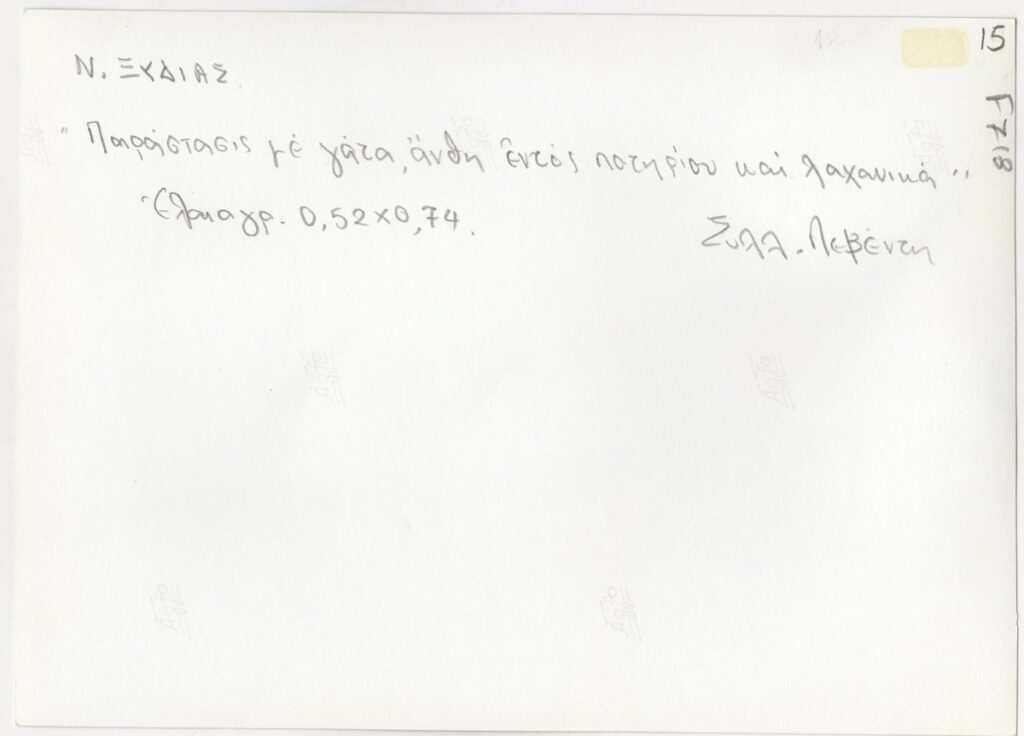 15
Γ718
Ν. ΞΥΔΙΑΣ
"Παράστασις μέ γάτα, ἄνθη ἐντός ποτηρίου καί λαχανικά"
Ἐλαιογρ. 0,52×0,74.
Συλλ. Λεβέντη